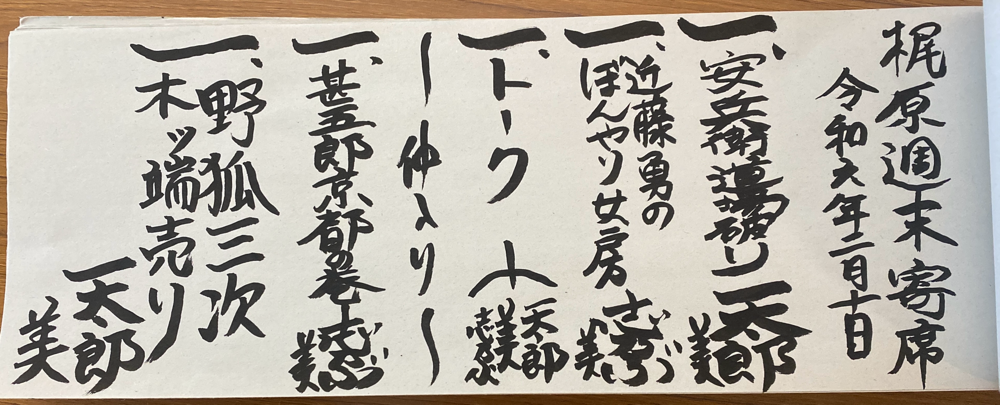 梶原週末寄席
令和六年二月十日
一、安兵衛道場破り 一太郎
美
一、近藤勇の
ぼんやり女房
美
一、トーク
一太郎
美
〜仲入り〜
一、甚五郎京都の巻
美
一、野狐三次
木ッ端売り
一太郎
美